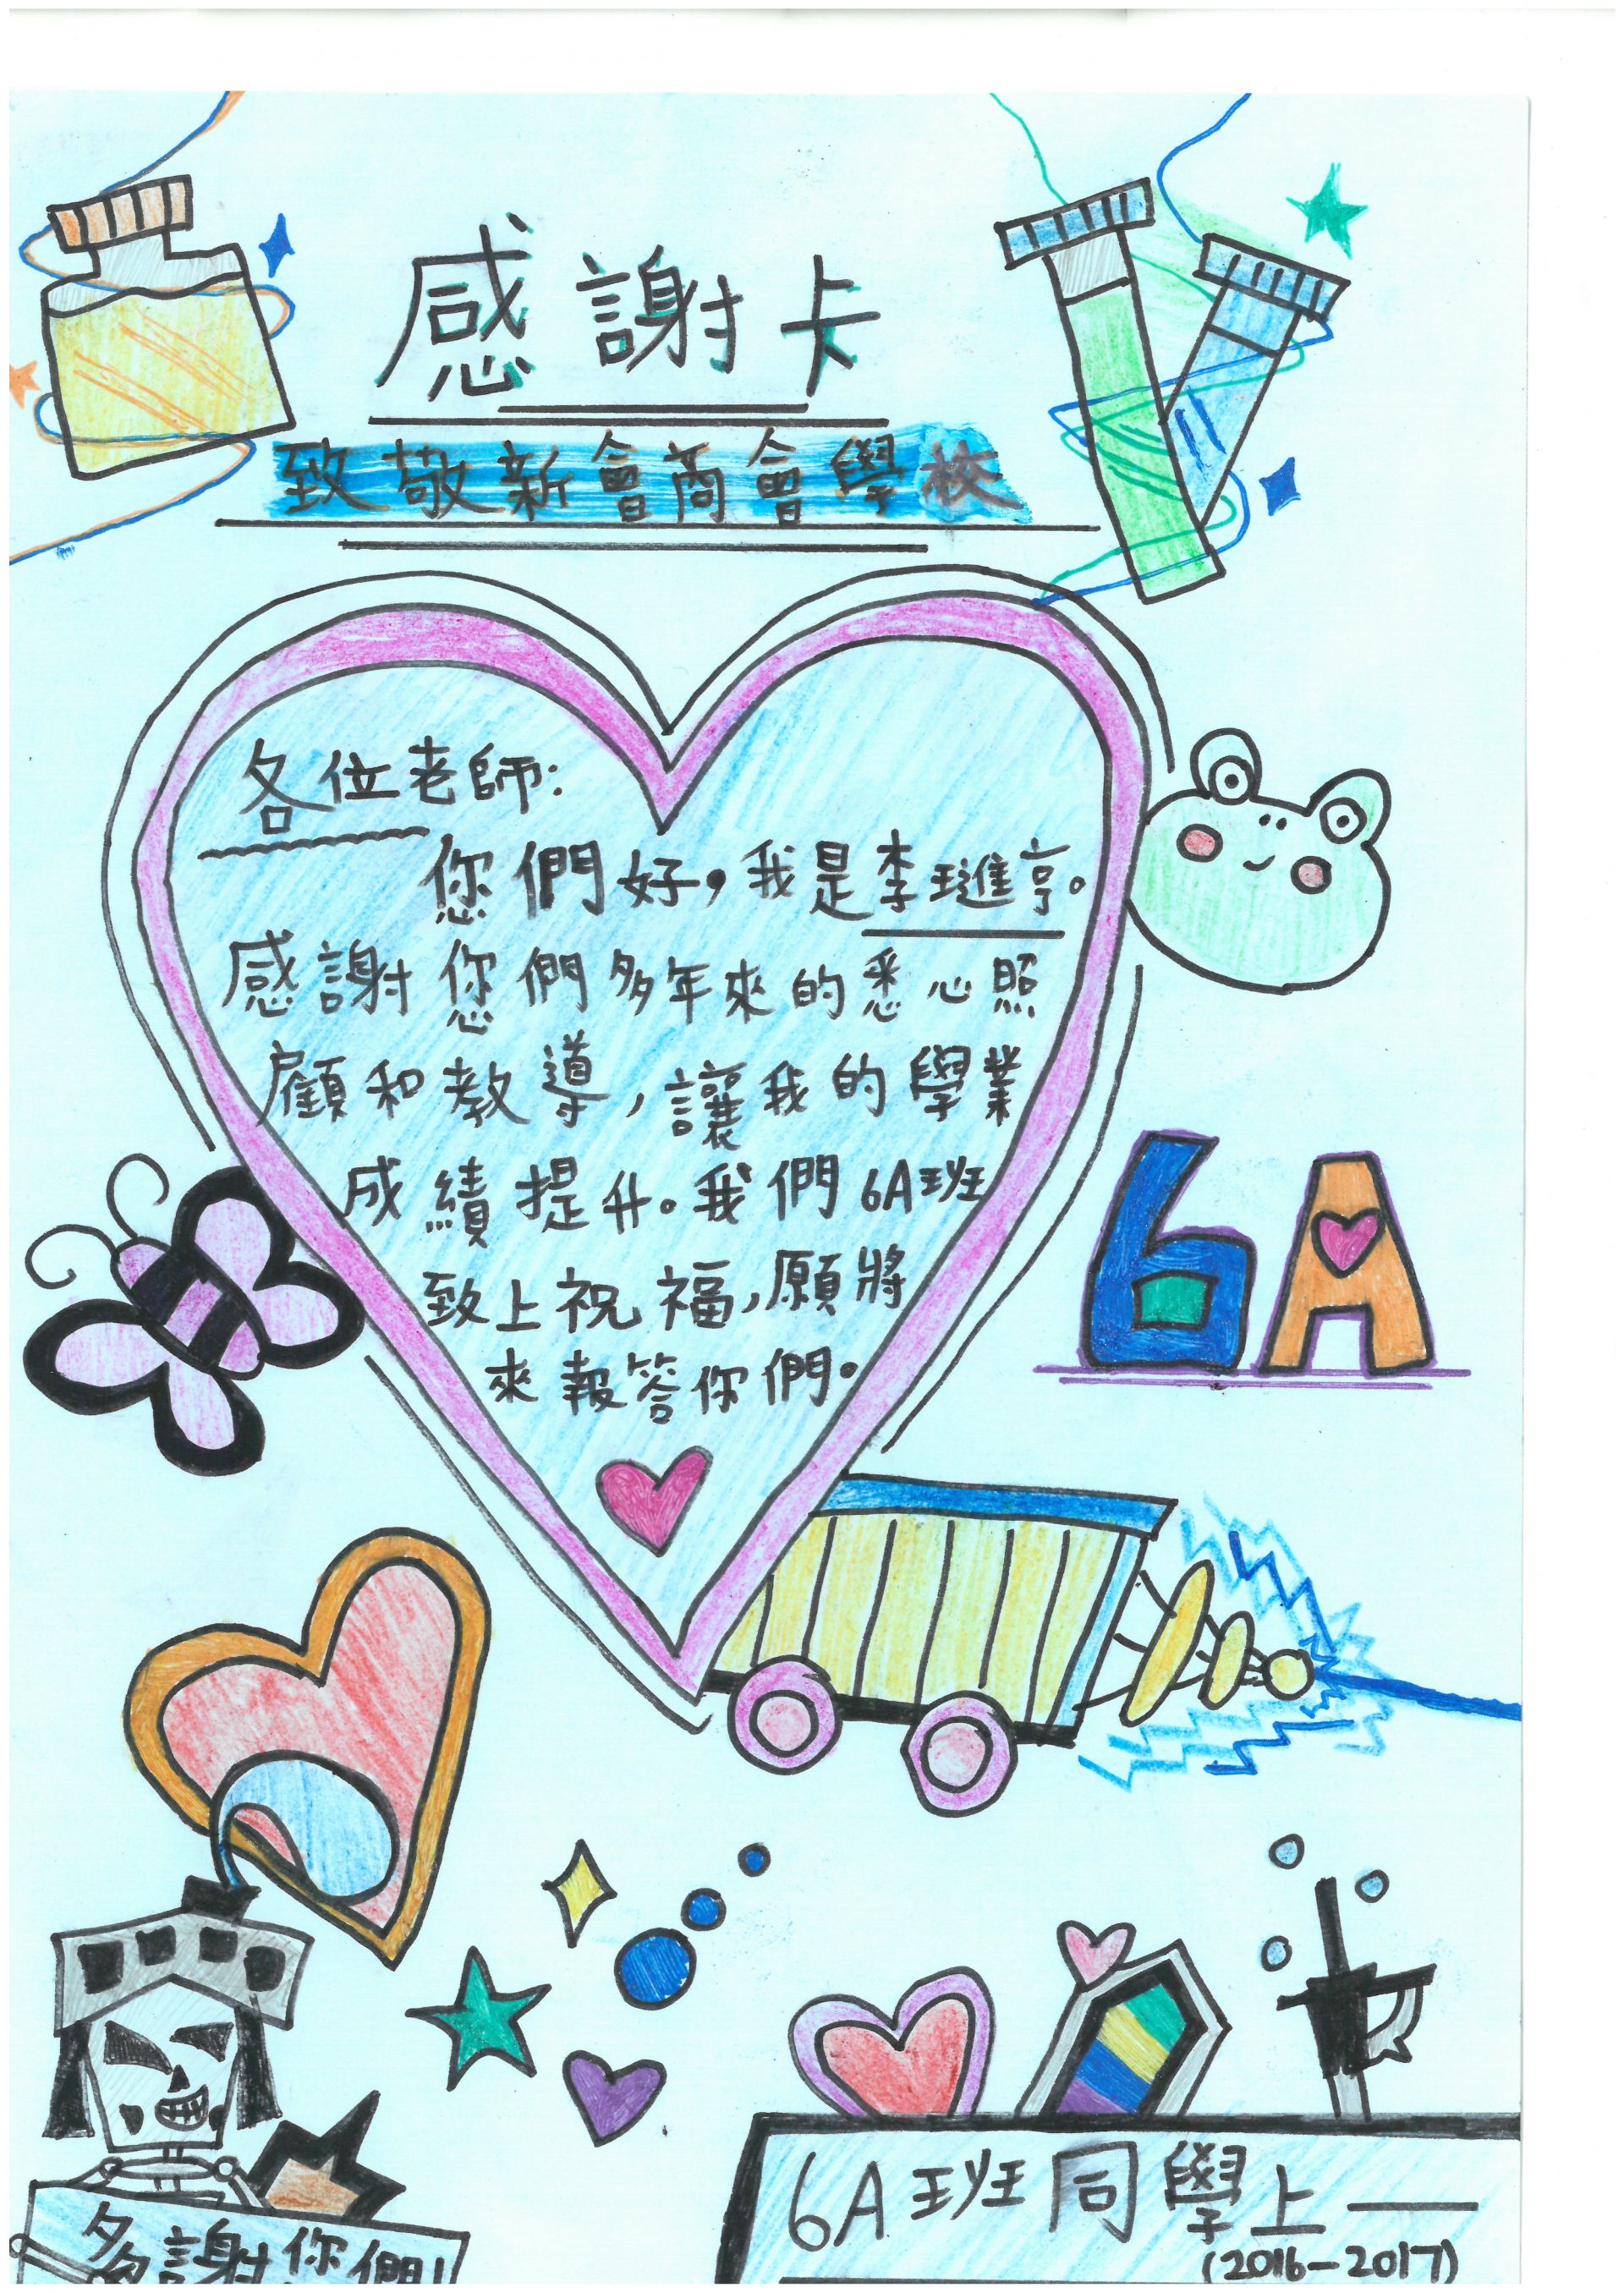 感謝卡
致敬新會商會學校
各位老師:
您們好，我是李璡亨。
感謝您們多年來的悉心照
顧和教導，讓我的學業
成績提升。我們6A班
致上祝福，願將
來報答你們。
6A
多謝你們!
6A班同學上——
(2016-2017)